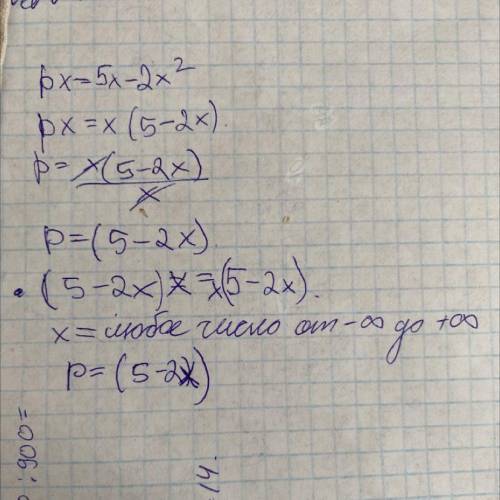 px=5x-2x²
px=x(5-2x).
p=x(5-2x)/x
p=(5-2x).
(5-2x)x=x(5-2x).
x=любое число от -∞ до +∞
p=(5-2x)
:900=
14.